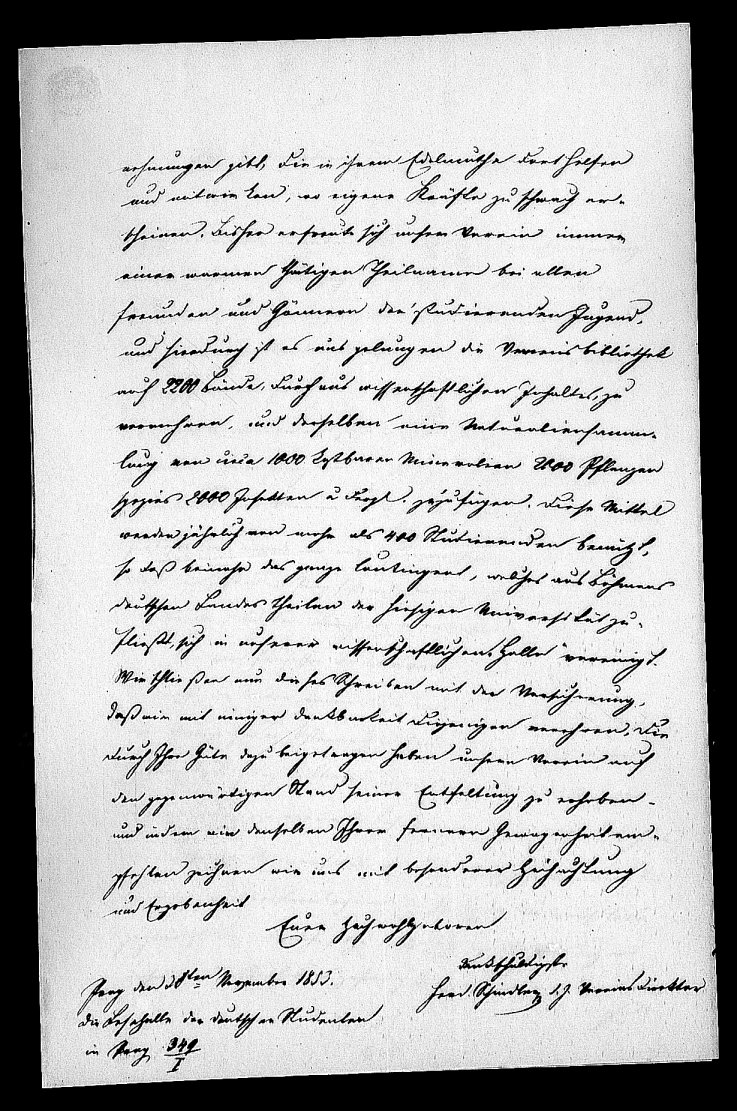 nehmungen gibt, die in ihrem Edelmuthe dort helfen
und mitwirken, wo eigene Kräfte zu schwach er-
scheinen. Bisher erfreute sich unser Verein immer
einer warmen thätigen Theilname bei allen
Freunden und Gönnern der studierenden Jugend,
und hierdurch ist es uns gelungen die Vereinsbibliothek
auf 2200 Bände, durchaus wissenschaftlichen Inhaltes, zu
vermehren, und derselben eine Naturaliensamm-
lung von circa 1000 kostbaren Mineralien 2000 Pflanzen
spezies 2000 Insekten u dergl. zuzufügen. Diese Mittel
werden jährlich von mehr als 400 Studierenden benützt,
so daß beinahe das ganze Contingent, welches aus Böhmens
deutschen Landestheilen der hiesigen Universität zu-
fließt, sich in unserer wissenschaftlichen "Halle" vereinigt.
Wir schließen nun dieses Schreiben mit der Versicherung,
daß wir mit inniger Dankbarkeit Diejenigen verehren, die
durch Ihre Güte dazu beigetragen haben unsern Verein auf
den gegenwärtigen Stand seiner Entfaltung zu erheben -
und indem wir denselben Ihrer ferneren Gewogenheit em-
pfehlen zeichnen wir uns mit besonderer Hochachtung
und Ergebenheit
Euer Hochwohlgeboren
dankschuldigste
Prag den 28ten November 1853.
Ferd. Schindler d. Z. Vereins Direktor
Die Lesehalle der deutschen Studenten
in Prag 349/I